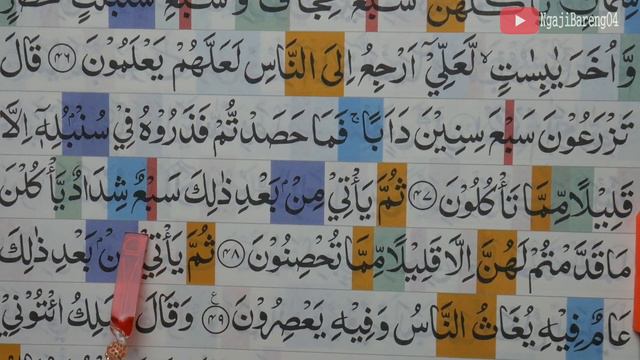 NgajiBareng04
وَّاُخَرَ يٰبِسٰتٍۙ لَّعَلِّيْٓ اَرْجِعُ اِلَى النَّاسِ لَعَلَّهُمْ يَعْلَمُوْنَ ٤٦ قَالَ
تَزْرَعُوْنَ سَبْعَ سِنِيْنَ دَاَبًاۚ فَمَا حَصَدْتُّمْ فَذَرُوْهُ فِيْ سُنْۢبُلِهٖٓ اِلَّا
قَلِيْلًا مِّمَّا تَأْكُلُوْنَ ٤٧ ثُمَّ يَأْتِيْ مِنْۢ بَعْدِ ذٰلِكَ سَبْعٌ شِدَادٌ يَّأْكُلْنَ
مَا قَدَّمْتُمْ لَهُنَّ اِلَّا قَلِيْلًا مِّمَّا تُحْصِنُوْنَ ٤٨ ثُمَّ يَأْتِيْ مِنْۢ بَعْدِ ذٰلِكَ
عَامٌ فِيْهِ يُغَاثُ النَّاسُ وَفِيْهِ يَعْصِرُوْنَ ٤٩ وَقَالَ الْمَلِكُ ائْتُوْنِيْ